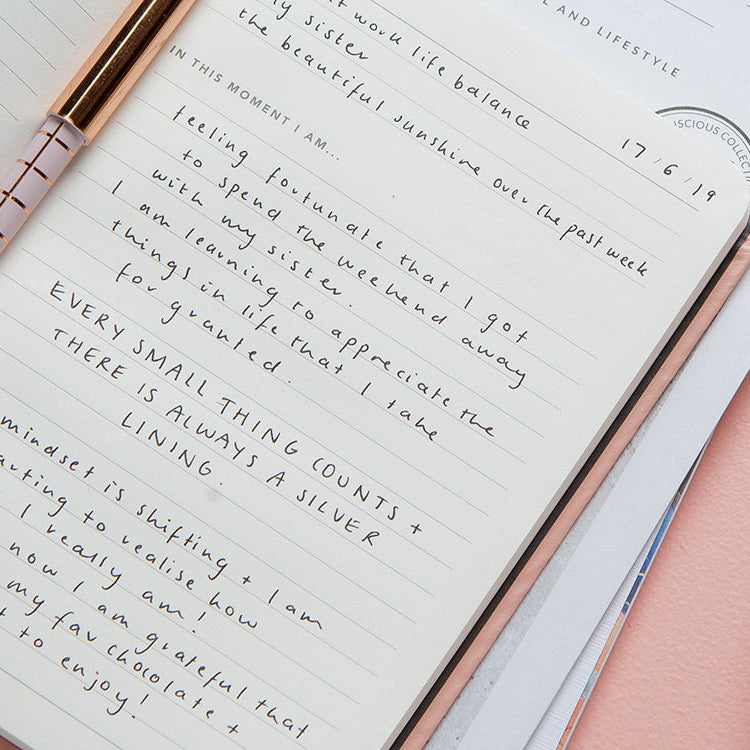 L AND LIFESTYLE
SCIOUS COLLECTI
17/6/19
t work life balance
my sister
the beautiful sunshine over the past week
IN THIS MOMENT I AM...
feeling fortunate that I got
to spend the weekend away
with my sister.
I am learning to appreciate the
things in life that I take
for granted.
EVERY SMALL THING COUNTS +
THERE IS ALWAYS A SILVER
LINING.
mindset is shifting + I am
arting to realise how
I really am!
now I am grateful that
my fav chocolate +
to enjoy!